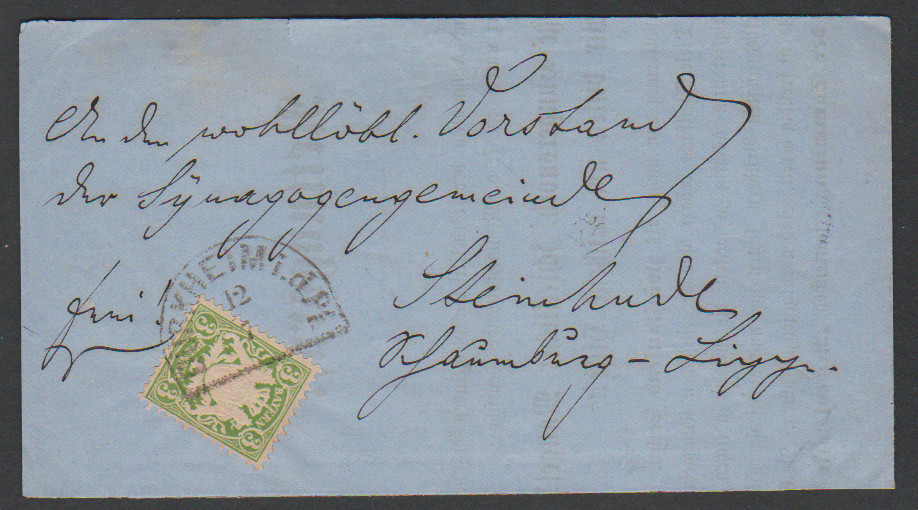 An den wohllöbl. Vorstand
der Synagogengemeinde
Steinhude
Schaumburg-Lippe.
frei!
HEIM I.d.Pf.
12
3
3
3
3
BAYERN